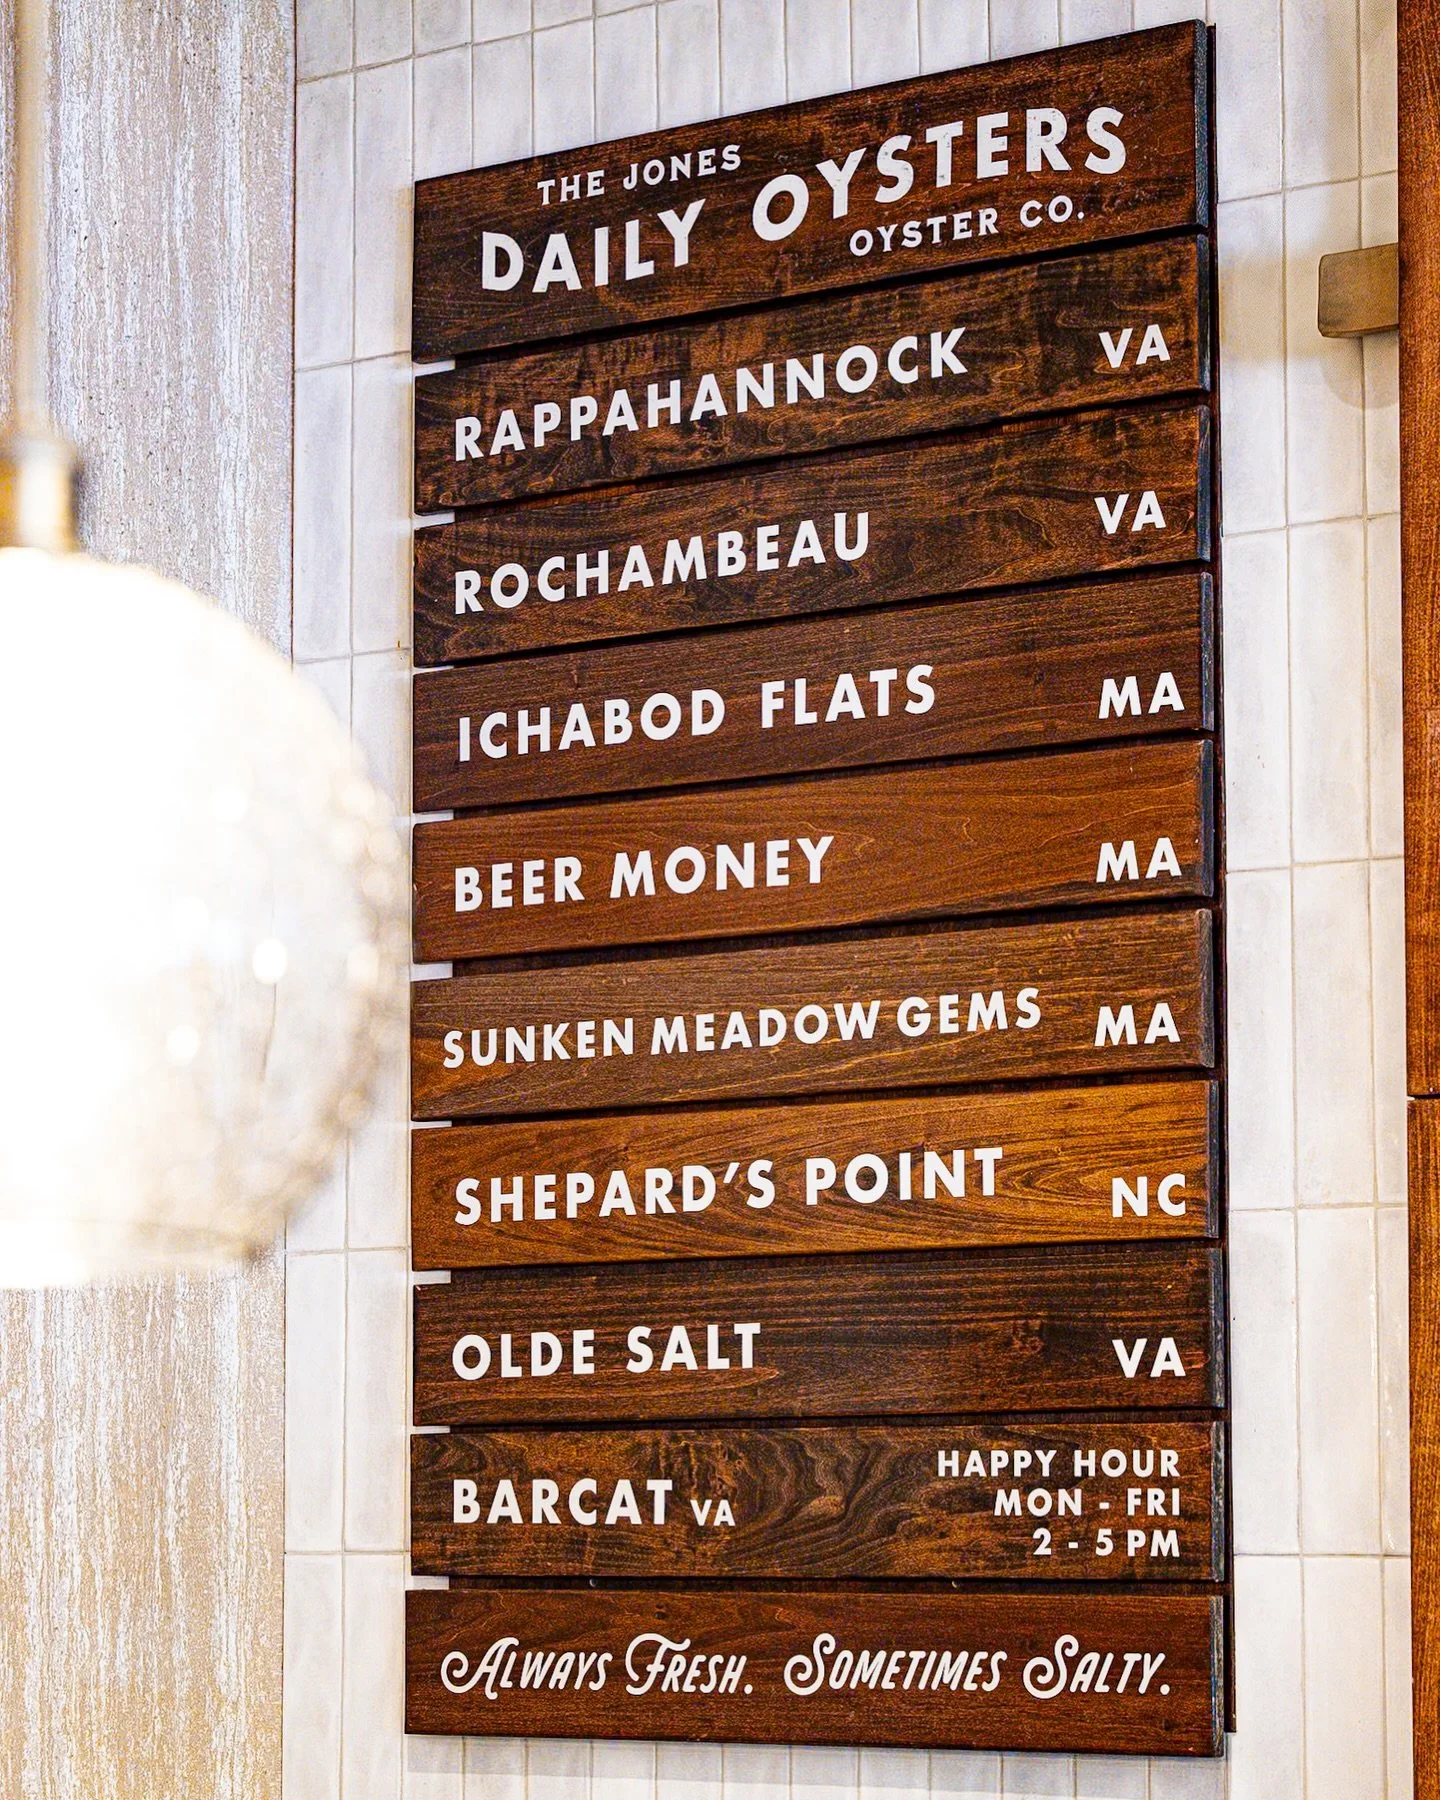 THE JONES
DAILY OYSTERS
OYSTER CO.
RAPPAHANNOCK VA
ROCHAMBEAU VA
ICHABOD FLATS MA
BEER MONEY MA
SUNKEN MEADOW GEMS MA
SHEPARD'S POINT NC
OLDE SALT VA
BARCAT VA
HAPPY HOUR
MON - FRI
2 - 5 PM
ALWAYS FRESH. SOMETIMES SALTY.